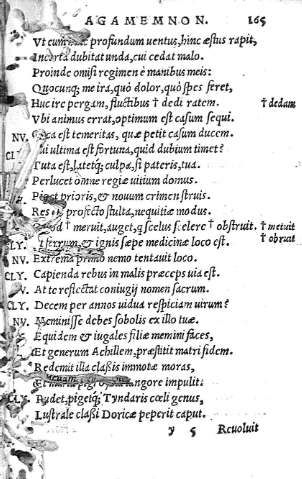 AGAMEMNON. 165
Vt cum profundum uentus, hinc æstus rapit,
Incerta dubitat unda, cui cedat malo.
Proinde omisi regimen è manibus meis:
Quocunq; me ira, quò dolor, quò spes feret,
Huc ire pergam, fluctibus † dedi ratem. † dedam
Vbi animus errat, optimum est casum sequi.
NV. est temeritas, quæ petit casum ducem.
ultima est fortuna, quid dubium timet?
Tuta est, latetq; culpa, si pateris, tua.
Perlucet omne regiæ uitium domus.
Piget prioris, & nouum crimen struis.
Res profecto stulta, nequitiæ modus.
† meruit, auget, q scelus scelere † obstruit. † metuit
CLY. & ignis sæpe medicinæ loco est. † obruit
NV. Extrema primo nemo tentauit loco.
CLY. Capienda rebus in malis præceps uia est.
At te reflectat coniugij nomen sacrum.
CLY. Decem per annos uidua respiciam uirum?
NV. Meminisse debes sobolis ex illo tuæ.
Equidem & iugales filiæ memini faces,
Et generum Achillem, præstitit matri fidem.
Redemit illa classis immotæ moras,
Et maria pigro langore impulit.
Pudet, pigetq; Tyndaris cœli genus,
Lustrale classi Doricæ peperit caput.
y 5 Reuoluit